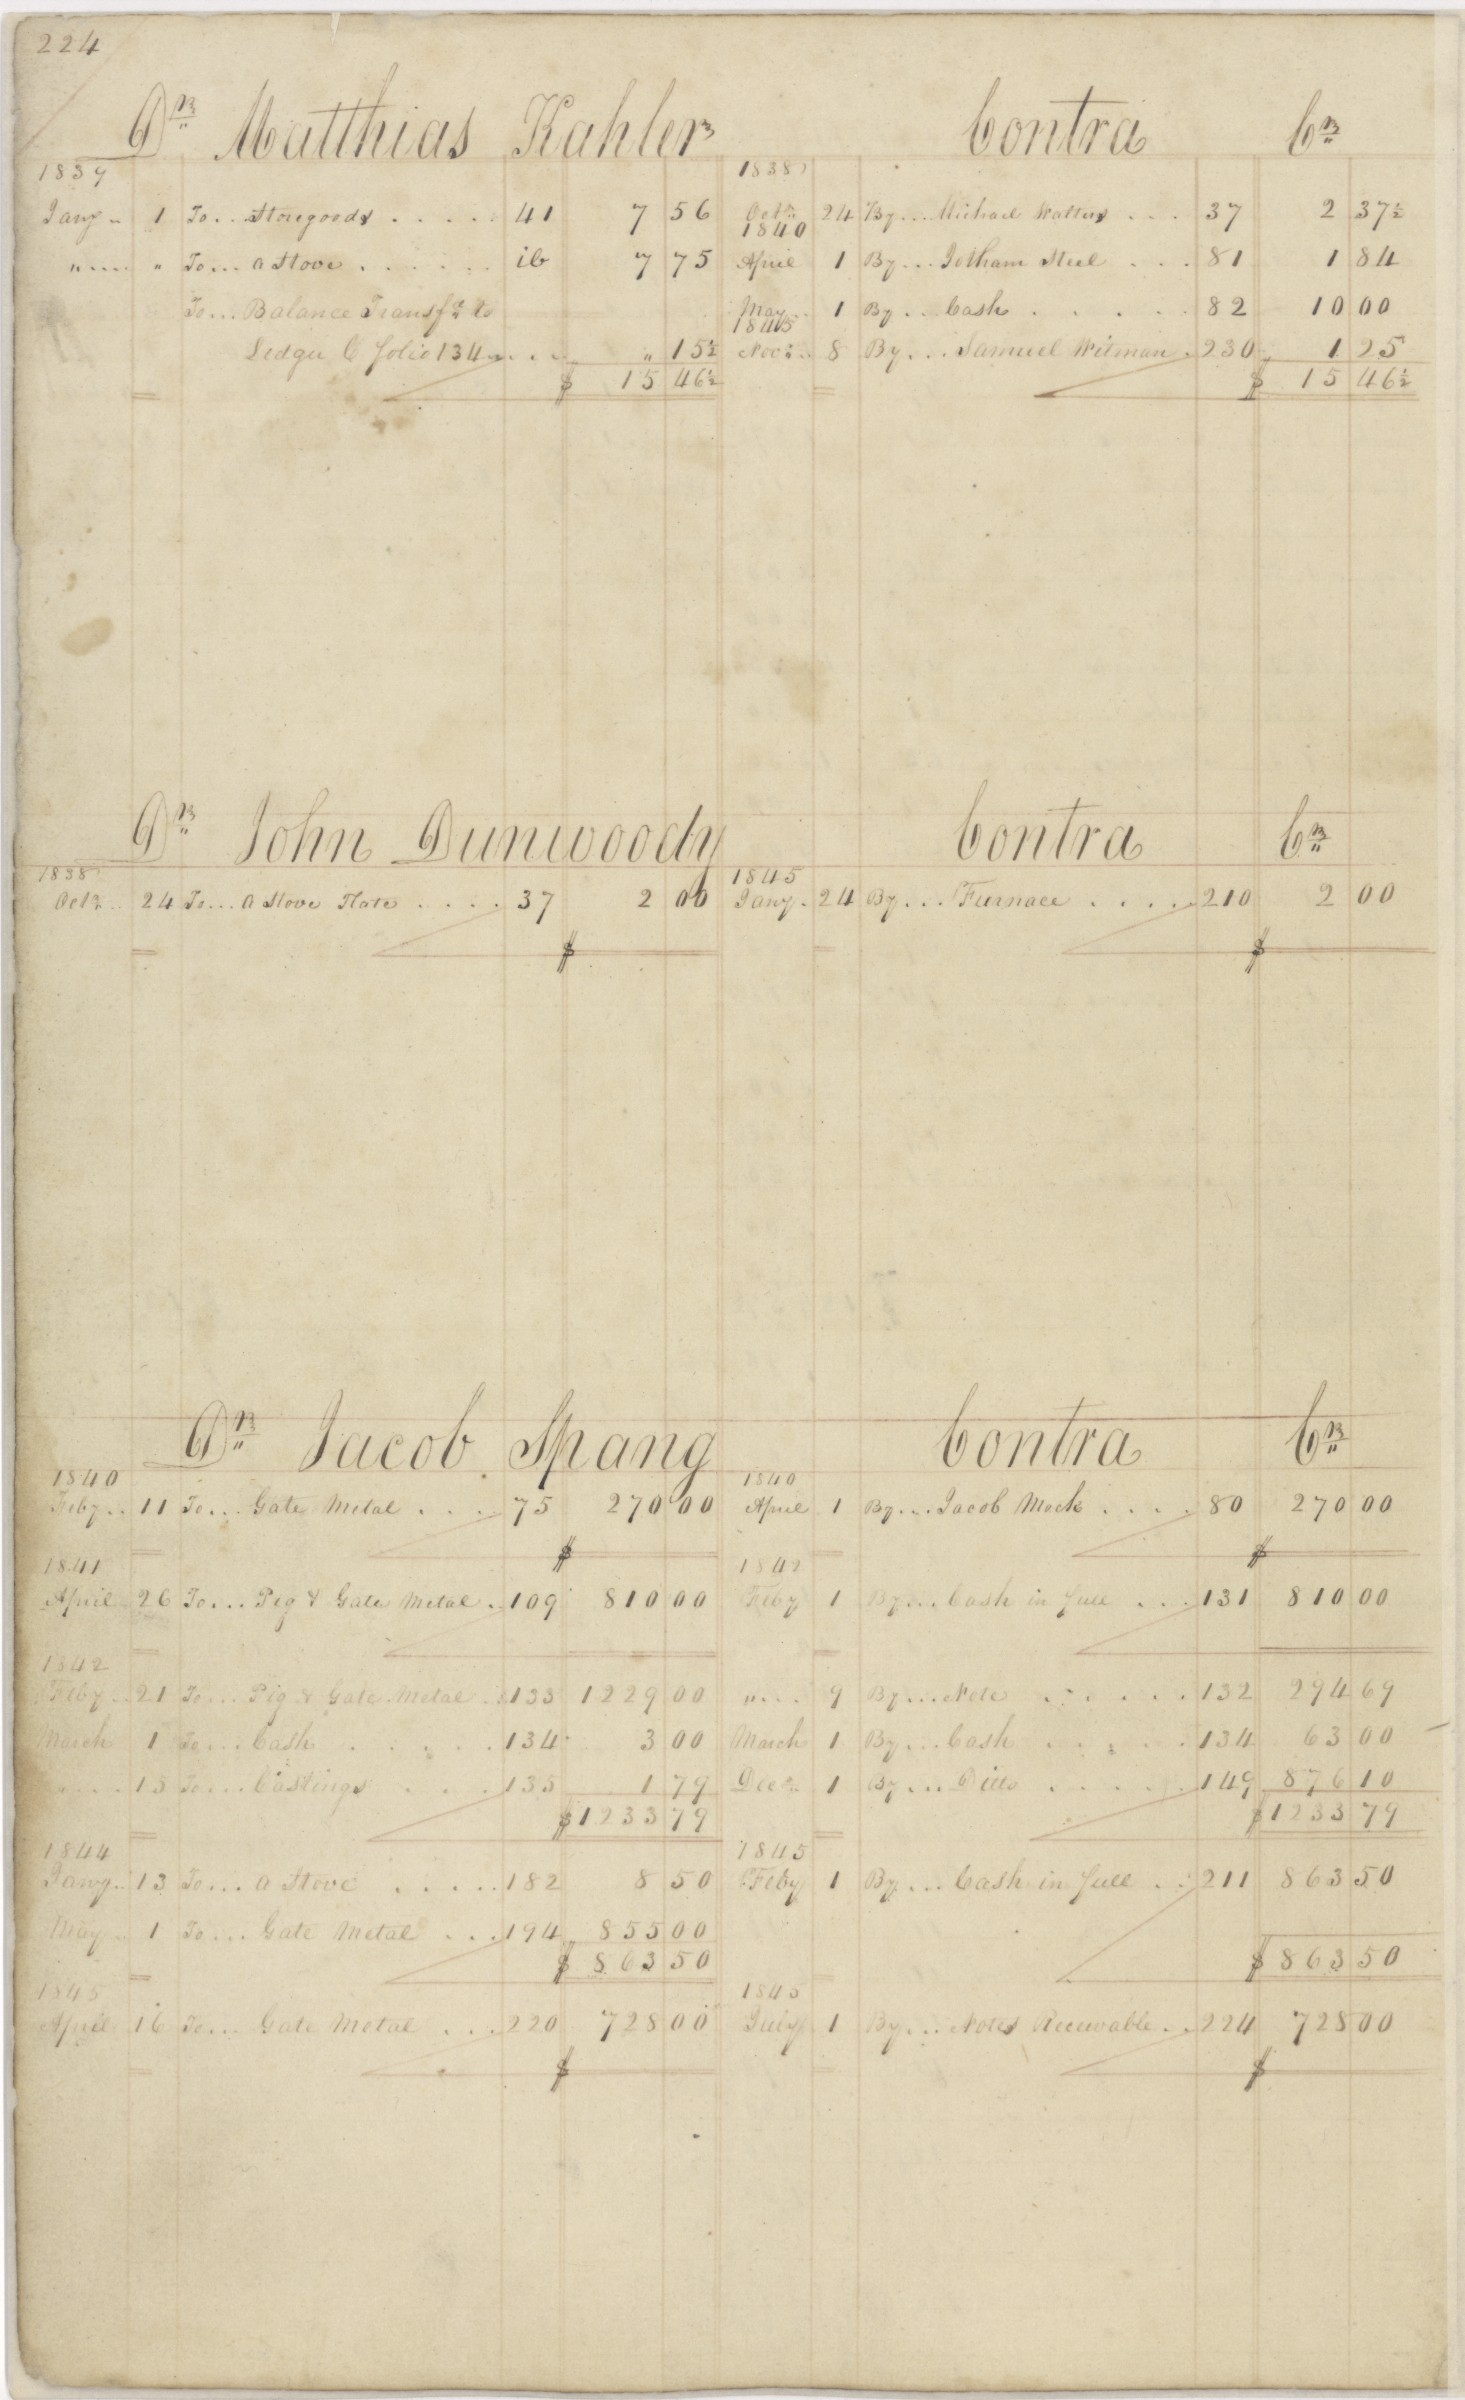 224
Dr Matthias Kahler Contra Cr
1839 1838
Jany 1 To... Storegoods ..... 41 7 56 Octr 24 By... Michael Walters ... 37 2 37½
1840
" .... " To... a Stove ...... ib 7 75 April 1 By... Jotham Steel ... 81 1 84
To... Balance Transfd to May .. 1 By .. Cash ..... 82 10 00
1845
Ledger C folio 134 .... " 15½ Novr .. 8 By ... Samuel Witman . 230 1 25
$ 15 46½ $ 15 46½
Dr John Dunwoody Contra Cr
1838 1845
Octr .. 24 To... a Stove Plate .... 37 2 00 Jany . 24 By... Furnace ..... 210 2 00
$ $
Dr Jacob Spang Contra Cr
1840 1840
Feby .. 11 To... Gate Metal .... 75 270 00 April 1 By... Jacob Mock .... 80 270 00
$ $
1841 1842
April 26 To... Pig & Gate Metal . 109 810 00 Feby 1 By... Cash in full ... 131 810 00
1842
Feby .. 21 To... Pig & Gate Metal .. 133 1229 00 " .... 9 By... Note ...... 132 294 69
March 1 To... Cash ..... 134 3 00 March 1 By... Cash ..... 134 63 00
" .... 15 To... Castings ... 135 1 79 Decr 1 By... Ditto ..... 149 876 10
$1233 79 $1233 79
1844 1845
Jany .. 13 To... a Stove ..... 182 8 50 Feby 1 By... Cash in full .. 211 863 50
May .. 1 To... Gate Metal ... 194 855 00
$ 863 50 $ 863 50
1845 1845
April 16 To... Gate Metal ... 220 728 00 July 1 By... Notes Receivable .. 224 728 00
$ $